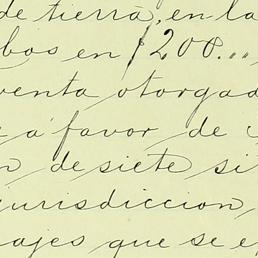 de tierra, en la
bos en $1200.,,
venta otorgad
a favor de
n de siete si
jurisdiccion,
ajes que se e